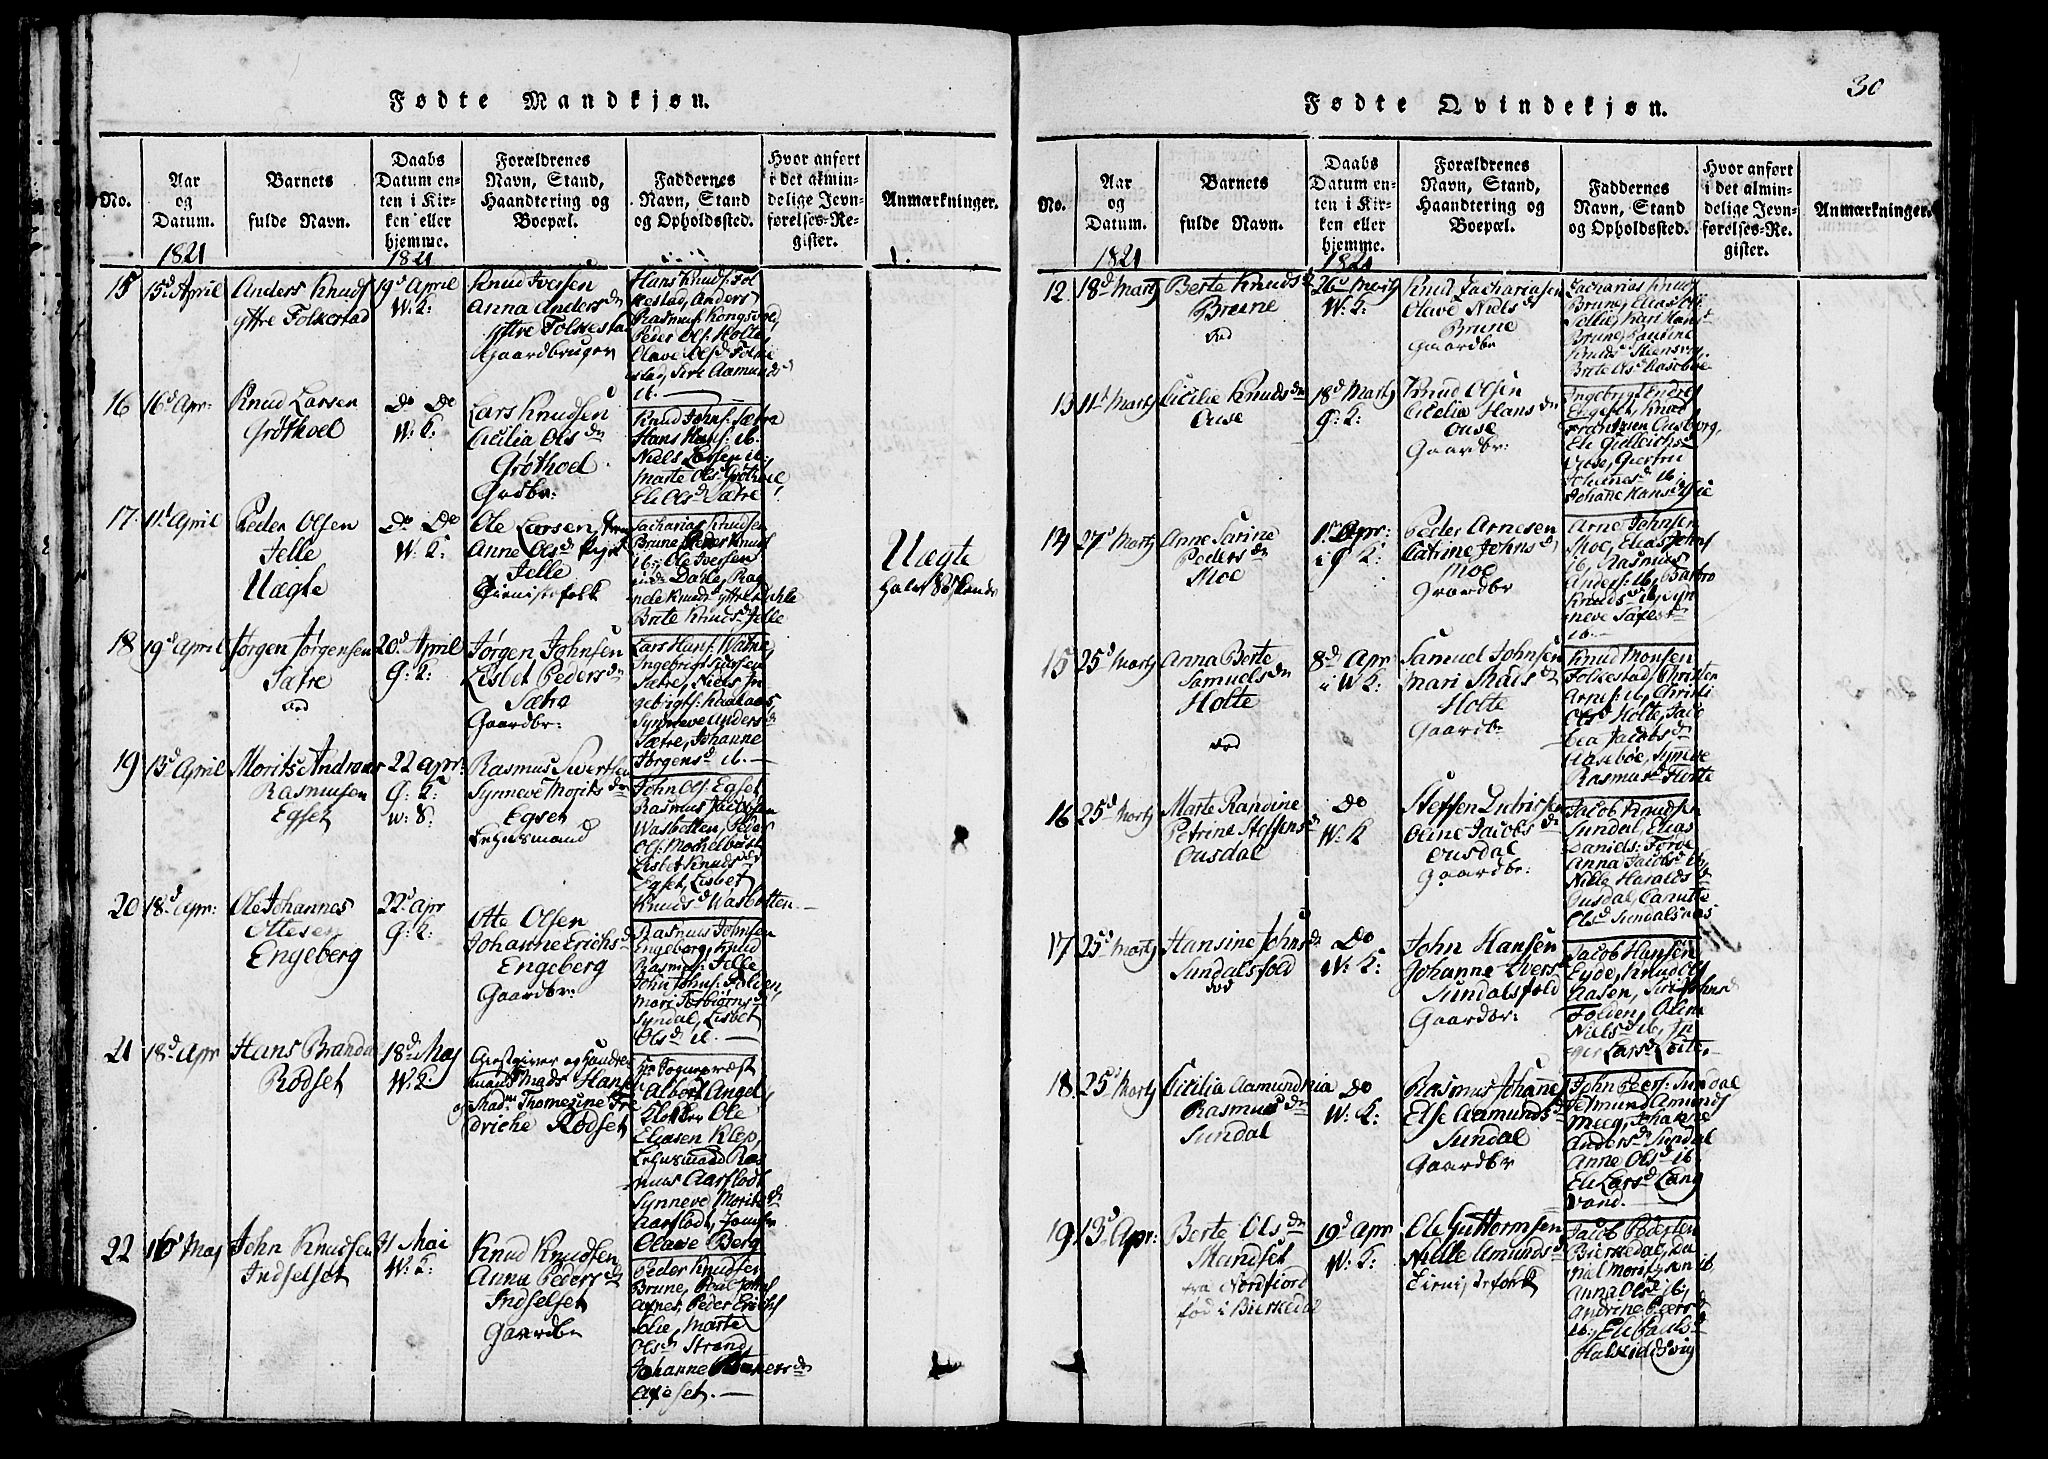 Fødte Mandkjøn.
No.
Aar og Datum.
Barnets fulde Navn.
Daabs Datum enten i Kirken eller hjemme.
Forældrenes Navn, Stand, Haandtering og Boepæl.
Faddernes Navn, Stand og Opholdssted.
Hvor anført i det almindelige Jevnførelses-Register.
Anmærkninger.
1821
1821
15
15d April
Anders Knuds
yttre Folkestad
19d April
W: K:
Knud Iversen
Anna Andersdn
yttre Folkestad
Gaardbrugen
Hans Knuds: Fol
kestad, Anders
Rasmus: Kongsvol,
Peder Ols: Holte
Olave Olsd Folke
stad, Siri Aamundsd
ib.
16
16d Apr:
Knud Larsen
Grøthoel
Do Do
W: K:
Lars Knudsen
Cicilia Olsdn
Grøthoel
Grdbr:
Knud Johns: Sætre
Hans Hans: ib.
Niels Larsen ib:
Marte Ols: Grøthoel,
Eli Olsd Sætre
17
11d April
Peder Olsen
Jelle
Uægte
Do Do
W: K:
Ole Larsen
Anne Olsd
Jelle
Tienistefolk
Zacharias Knudsen
Brune, Peder Knuds
ib., Ole Iversen
Dahle, Rag
nele Knudsd yttre
Brite Knudsd Jelle
Uægte
halvt Sødskende
18
19d April
Jørgen Jørgensen
Sætre
død
20d April
G: K:
Jørgen Johnsen
Lisbet Pedersdn
Sætre
Gaardbr:
Lars Hans: Watne
Ingebrigt Sivrsen
Sætre, Niels In
gebrigts: Raakaas,
Synneve Andersd
Sætre, Johanne
Jørgensd ib.
19
13d April
Morits Andreas
Rasmusen
Egset
22 apr:
G: K:
w: S:
Rasmus Sivertsen
Synneve Moritsdn
Egset
Lehnsmand
John Ols: Egset,
Rasmus Jacobsen
Wasbotten, Peder
Ols: Mochelbust
Lisbet Knudsd
Egset, Lisbet
Knudsd Wasbotten
20
18d Apr:
Ole Johannes
Ottesen
Engeberg
22d apr
G: K:
Otte Olsen
Johanne Erichsd
Engeberg
Gaardbr:
Rasmus Johnsen
Engeberg, Knud
Rasmus: Jelle
John Johns: Folden,
Mari Torbiørnsd
Syndal, Lisbet
Olsd ib.
21
18d Apr
Hans Brandal
Rødset
18d Maj
W: K:
Giestgiver og Handels
mand Mads Hansen
og Madme Thomesine Fre
driche Rødset
Hr Sognepræst
Albert Angel
Ole
Eliasen Klep,
Lehnsmand Ras
mus Aarflodt
Synneve Moritsd
Aarflodt, Jomfr
Olave Berg
22
16d Maj
John Knudsen
Indselset
Mai
W: K:
Knud Knudsen
Anna Pedersdn
Indselset
Gaardbr
Peder Knudsen
Brune, Paal Johns
Axnes, Peder Erichs
Folie, Marte
Olsd Strand
Johanne
Fødte Qvindekjøn.
30
No.
Aar og Datum.
Barnets fulde Navn.
Daabs Datum enten i Kirken eller hjemme.
Forældrenes Navn, Stand, Haandtering og Boepæl.
Faddernes Navn, Stand og Opholdssted.
Hvor anført i det almindelige Jevnførelses-Register.
Anmærkninger.
1821
1821
12
18d Martj
Berte Knudsd
Brune
død
26d Martj
W: K:
Knud Zachariasen
Olave Nielsd
Brune
Gaardbr
Zacharias Knuds
Brune, Elias Ols
Jelle, Kari Hansd
Brune, Pauline
Knudsd Steensvog,
Brite Olsd Hasebøe
13
11d Martj
Cicilie Knudsdn
Ouse
18d Martj
G: K:
Knud Olsen
Cicilia Hansdn
Ouse
Gaardbr:
Ingebrigt Endres
Engeset, Knud
Frantzen Ausberg,
Eli Gullichsd
Ouse, Giertru
ib.
Johane Hansd
14
27d Martj
Anne Sarine
Pedersdn
Moe
1d Apr:
i G: K:
Peder Arnesen
Catrine Johnsd
Moe
Graardbr
Arne Johnsen
Moe, Elias Johns
ib, Rasmus
Anders: ib, Barbro
Knudsd ib, Syn
neve
ib.
15
25d Martj
Anna Berte
Samuelsdn
Holte
død
8d Apr
i W K:
Samuel Johnsen
Mari
Holte
Gaardbr
Knud Monsen
Folkestad, Christen
Arnes: ib, Christi
Olsd Holte, Jaco
bia Jacobsd
Hasebøe, Syneve
Rasmusd Holte
16
25d Martj
Marte Randine
Petrine Steffensd
Ousdal
Do
W: K
Steffen Endrissen
Oline Jacobsd
Ousdal
Gaardbr:
Jacob Knudsen
Sundal, Elias
Daniels: Førde
Anna Jacobsd ib,
Nille Haraldsd
Ousdal, Canutte
Olsd Sundalsnæs
17
25d Martj
Hansine Johnsdn
Sundalsfold
død
Do
W: K:
John Hansen
Johanne Iversd
Sundalsfold
Gaardbr:
Jacob Hansen
Eyde, Knud Ols
Aasen, Siri Johnsd
Folden, Oline
Nielsd ib, In
ger Larsd
18
25d Martj
Cicilia Aamundnia
Rasmusdn
Sundal
Do
W: K:
Rasmus Johannes
Else Aamundsdn
Sundal
Gaardbr
John Peers: Sundal
Amunds
Meeg, Johanne
Andersd Sundal
Anne Olsd ib
Eli Larsd Lang
vand.
19
13d Apr:
Berte Olsdn
Mandset
fra Nordfiord
fød i Bierkedal
19d apr
W: K:
Ole Guttormsen
Nille Amundsd
Tienistefolk
Jacob Peersen
Bierkedal, Da
niel Moritzsen ib
Anna Olsd ib,
Andrine Peersd
ib, Eli Paulsd
Halkildsvig